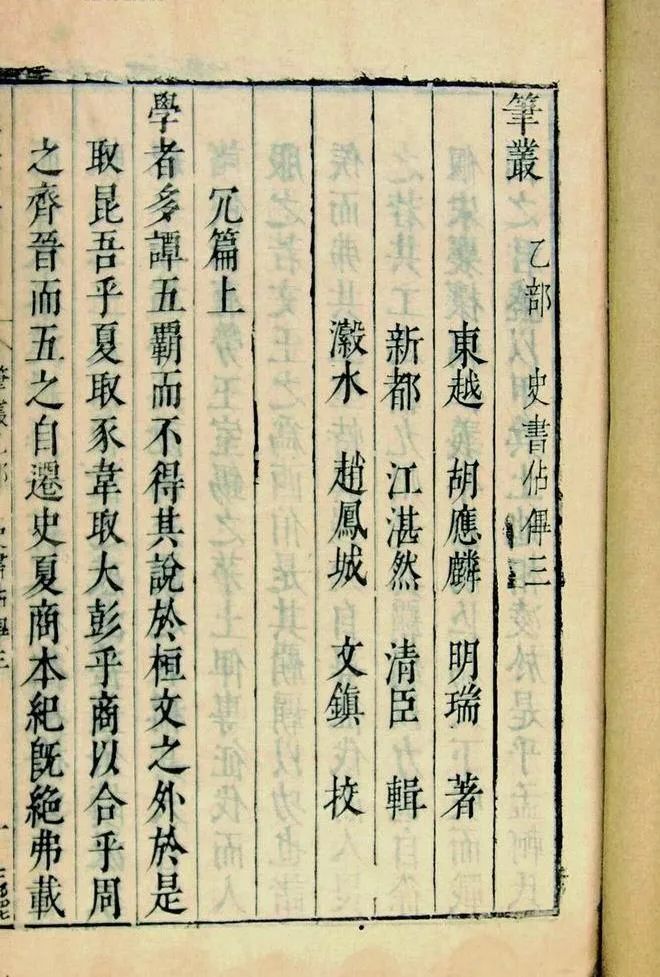 筆叢 乙部 史書佔𠌫三
東越 胡應麟 明瑞 著
新都 江湛然 清臣 輯
瀫水 趙鳳城 文鎮 挍
冗篇上
學者多譚五覇而不得其說於桓文之外於是
取昆吾乎夏取豕韋取大彭乎商以合乎周
之齊晉而五之自遷史夏商本紀旣絶弗載